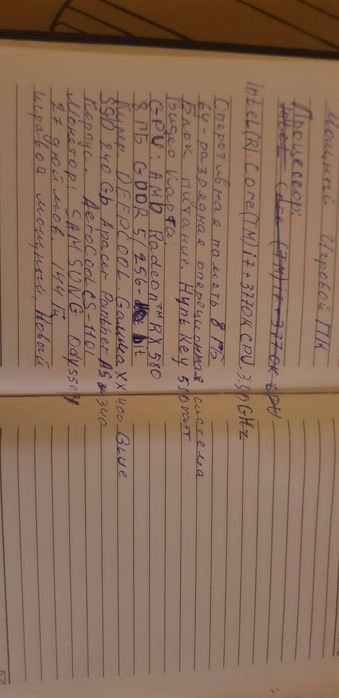 Мощный Игровой ПК
Процессор:
Intel Core (TM) i7 + 3770K CPU
intel(R) Core(TM) i7 + 3770K CPU. 3.50GHz
Оперотивная память 8 Гб
64-разрядная операционная система
Блок питание Hyntkey 500ват
Видео карта:
GPV: AMD Radeon™ RX 580
8 ГБ GDDR 5/256- bit
Кулер DEEPCOOL Gammaxx 400 Blue
SSD 240 Gb Apacer Panther AS 340
Корпус. AeroCool CS-1101
Монитор: SAMSUNG Odyssey
27 дюймов. 144 Гц
игравой мощный, Новый